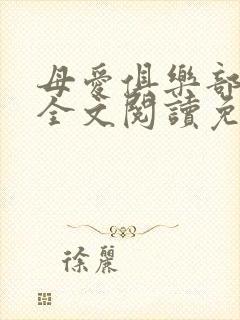 母愛俱樂部
全文閱讀免
徐麗